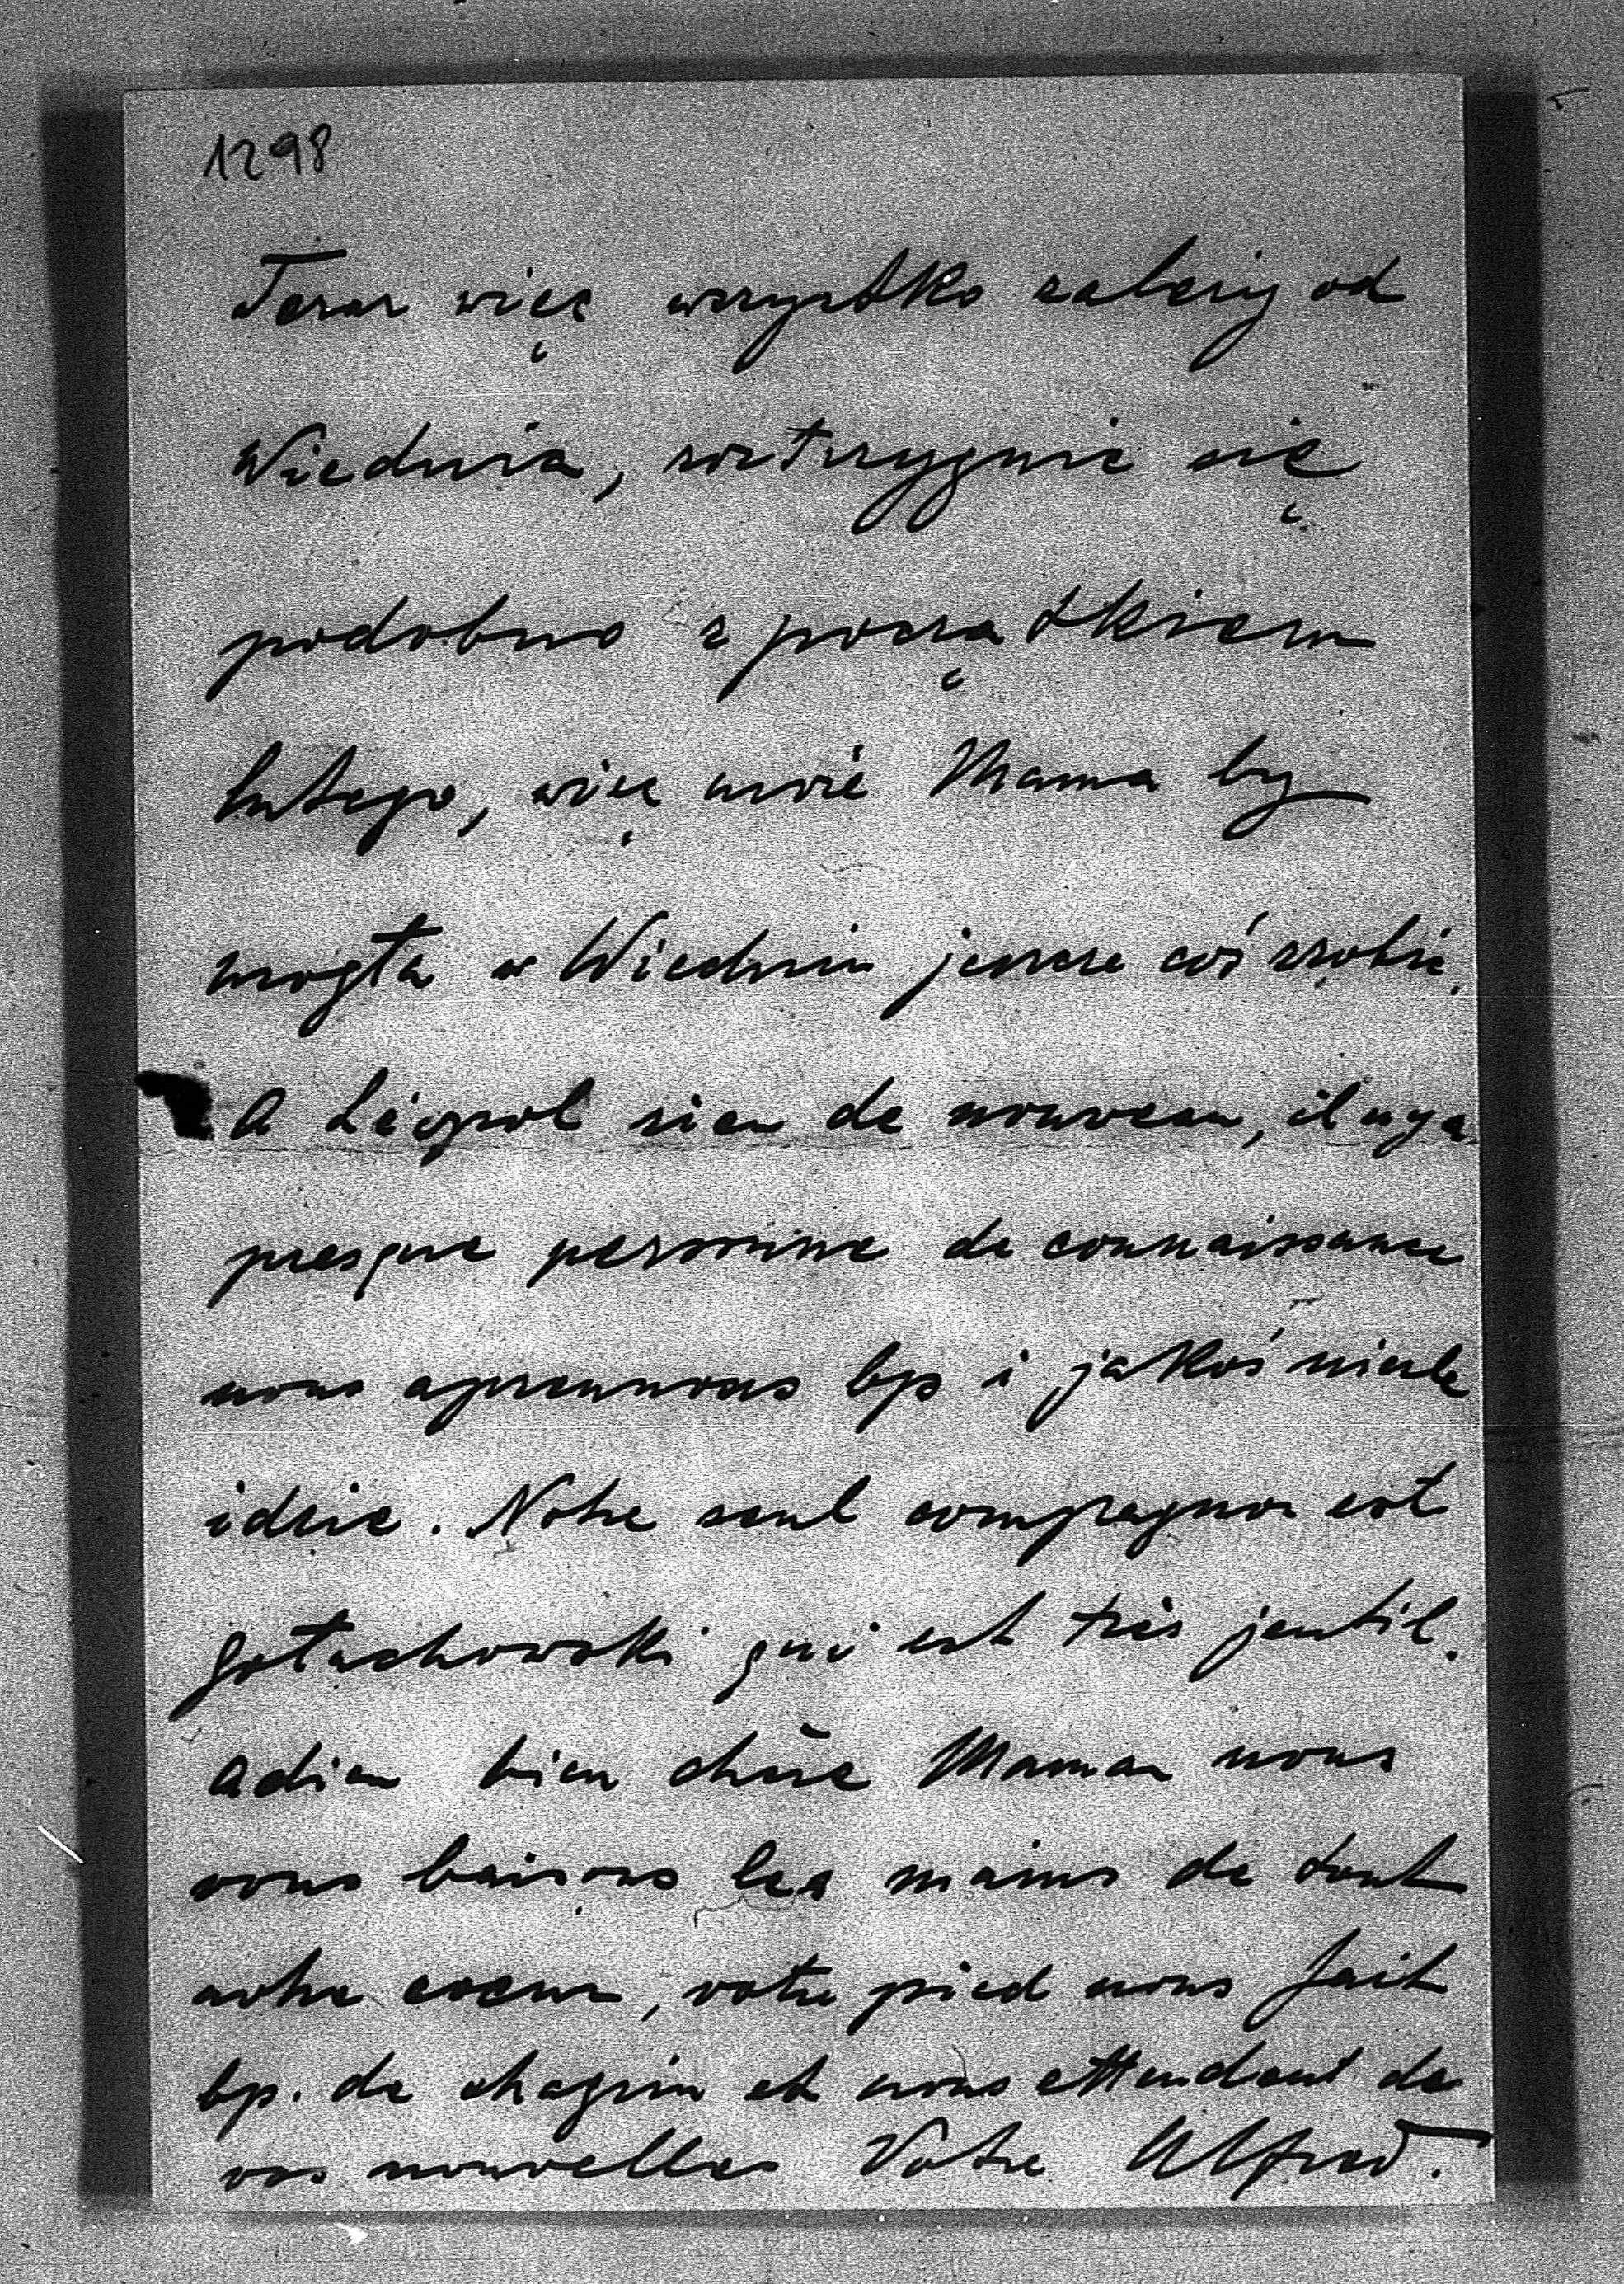 1298
Teraz więc wszystko zależy od
Wiednia, roztrzygnie się
podobno z początkiem
lutego, więc może Mama by
mogła w Wiedniu jeszcze coś zrobić.
A Léopol rien de nouveau, il n'y a
presque personne de connaissance
nous bp i jakoś nieźle
idzie. Notre seul compagnon est
Gołuchowski qui est très jentil.
Adieu bien chère Maman nous
vous baisons les mains de tout
notre coeur, votre pied nous fait
bp. de chagrin et nous attendent de
vos nouvelles Votre Alfred.